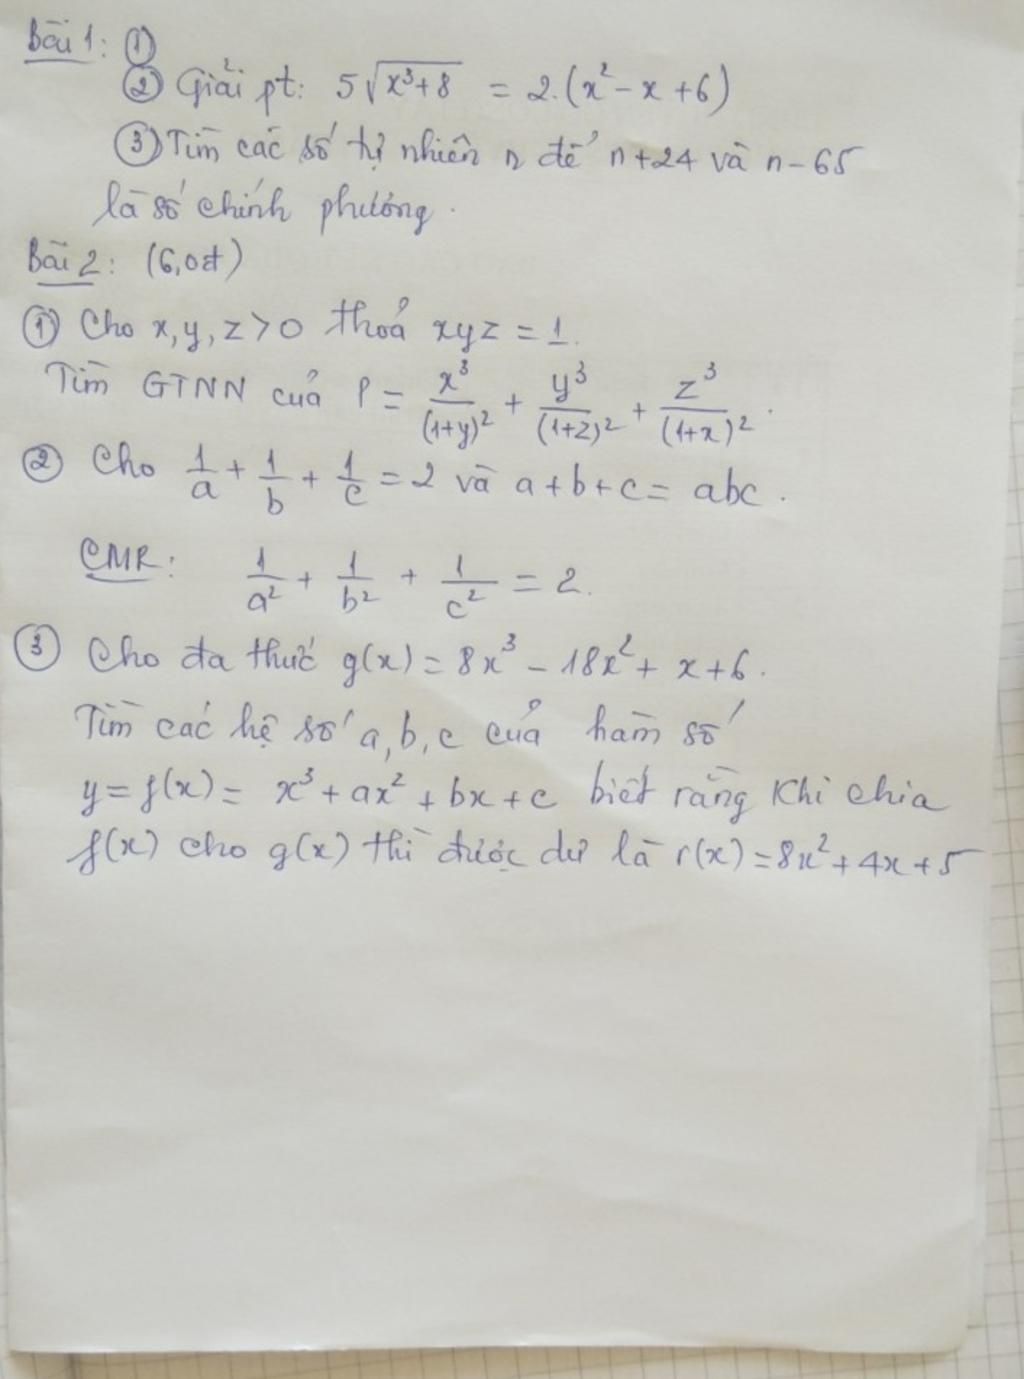 Bài 1: ①
② Giải pt: 5√(x³+8) = 2.(x² - x + 6)
③ Tìm các số tự nhiên n để n+24 và n-65
là số chính phương.
Bài 2: (6,0đ)
① Cho x, y, z > 0 thoả xyz = 1.
Tìm GTNN của P = x³/(1+y)² + y³/(1+z)² + z³/(1+x)².
② Cho 1/a + 1/b + 1/c = 2 và a+b+c = abc.
CMR: 1/a² + 1/b² + 1/c² = 2.
③ Cho đa thức g(x) = 8x³ - 18x² + x + 6.
Tìm các hệ số a, b, c của hàm số
y = f(x) = x³ + ax² + bx + c biết rằng khi chia
f(x) cho g(x) thì được dư là r(x) = 8x² + 4x + 5